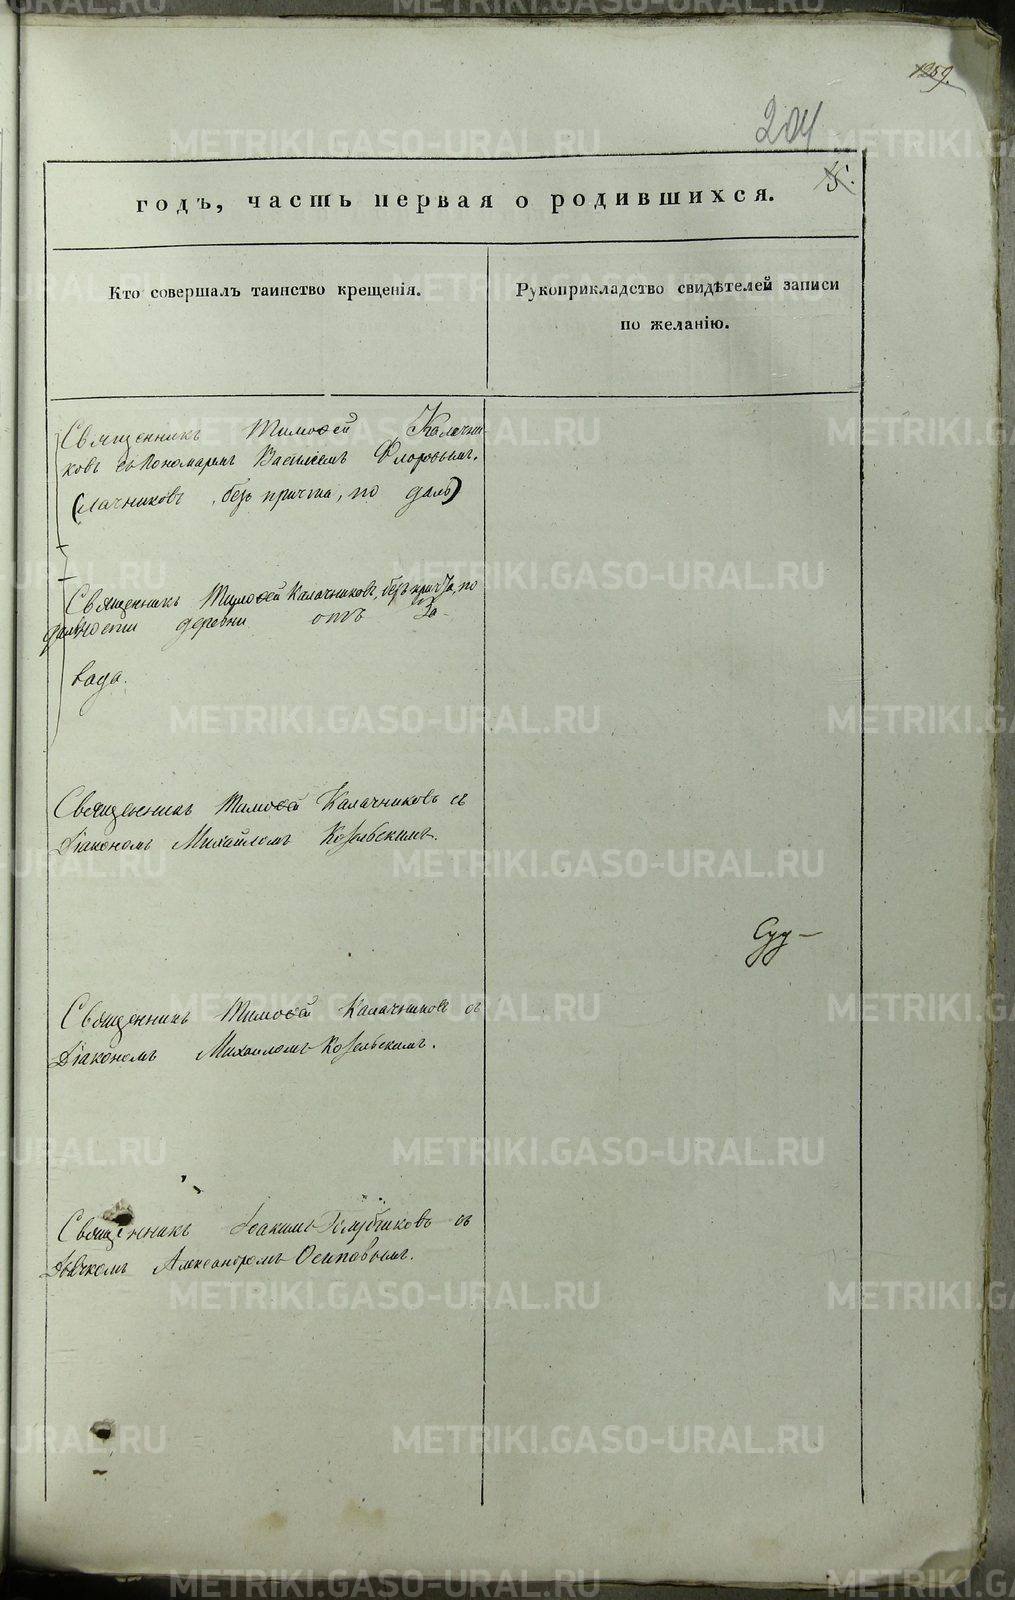 1259.
204
5.
годъ, часть первая о родившихся.
Кто совершалъ таинство крещенія.
Рукоприкладство свидѣтелей записи
по желанію.
Священникъ Тимоѳей Калачни-
ковъ съ Пономаремъ Василіемъ Флоровымъ.
(лачниковъ, безъ причта, по даль)
Священникъ Тимоѳей Калачниковъ, безъ причта, по
дальности деревни отъ За-
вода.
Священникъ Тимоѳей Калачниковъ съ
Діакономъ Михайломъ Козельскимъ.
Суд-
Священникъ Тимоѳей Калачниковъ съ
Діакономъ Михаиломъ Козельскимъ.
Священникъ Іоакимъ Голубчиковъ съ
Дьячкомъ Александромъ Осиповымъ.
METRIKI.GASO-URAL.RU